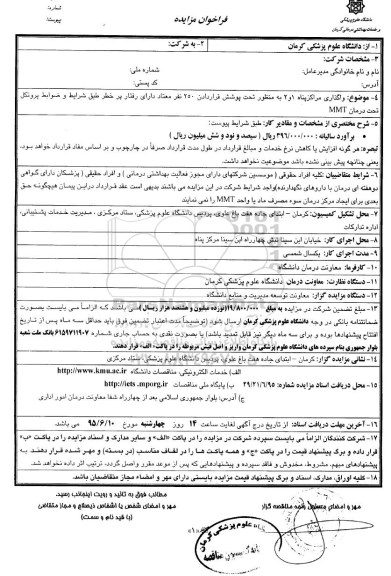 شماره:
پیوست:
فراخوان مزایده
دانشگاه علوم پزشکی
و خدمات بهداشتی درمانی کرمان
۱- از: دانشگاه علوم پزشکی کرمان
۲- به شرکت:
۳- مشخصات شرکت:
نام و نام خانوادگی مدیرعامل: شماره ملی:
آدرس: کد پستی:
۴- موضوع: واگذاری مراکز پناه ۱و۲ به منظور تحت پوشش قراردادن ۲۵۰ نفر معتاد دارای رفتار پر خطر طبق شرایط و ضوابط پروتکل
تحت درمان MMT
۵- شرح مختصری از مشخصات و مقادیر کار: طبق شرایط پیوست:
برآورد سالیانه: ۳۹۶/۰۰۰/۰۰۰ ریال ( سیصد و نود و شش میلیون ریال )
تبصره: هر گونه افزایش یا کاهش نرخ خدمات و مبالغ قرارداد در طول مدت قرارداد صرفاً در چارچوب و بر اساس مفاد قرارداد خواهد بود.
یعنی چنانچه پیش بینی نشده باشد موضوعیت نخواهد داشت.
۶- شرایط متقاضیان: کلیه افراد حقوقی ( موسسین شرکتهای دارای مجوز فعالیت بهداشتی درمانی ) و افراد حقیقی ( پزشکان دارای گواهی
دوهفته ای درمان با داروهای نگهدارنده) واجد شرایط شرکت در این مزایده می باشند بدیهی است عقد قرارداد دراین پیمان هیچگونه حق
بعدی برای ایجاد مرکز درمان سوء مصرف ماد یا واحد MMT نخواهد داشت.
۷- محل تشکیل کمیسیون: کرمان – ابتدای جاده هفت باغ علوی، پردیس دانشگاه علوم پزشکی، ستاد مرکزی، مدیریت خدمات پشتیبانی،
اداره تدارکات
۸- محل اجرای کار: خیابان ابن سینا نبش چهارراه ابن سینا مرکز پناه
۹- مدت اجرای کار: یکسال شمسی
۱۰- کارفرما: معاونت درمان دانشگاه
۱۱- دستگاه نظارت: معاونت درمان دانشگاه علوم پزشکی کرمان
۱۲- دستگاه مزایده گزار: معاونت توسعه مدیریت و منابع دانشگاه
۱۳- مبلغ تضمین شرکت در مزایده به مبلغ ۱۹/۸۰۰/۰۰۰ (نوزده میلیون و هشتصد هزار ریال) می باشد که الزاماً می بایست بصورت
ضمانتنامه بانکی در وجه دانشگاه علوم پزشکی کرمان ارسال شود (توضیحاً مدت اعتبار تضمین فوق باید حداقل سه ماه پس از تاریخ
افتتاح پیشنهادها بوده و برای سه ماه دیگر نیز قابل تمدید باشد) یا بصورت نقدی به حساب جاری شماره ۶۱۵۹۷۱۱۹۰۷ بانک ملت شعبه
بلوار جمهوری بنام سپرده های دانشگاه علوم پزشکی کرمان واریز و اصل فیش مربوطه را در پاکت- الف- قرار دهند.
۱۴- نشانی مزایده گزار: کرمان – ابتدای جاده هفت باغ علوی، پردیس دانشگاه علوم پزشکی، ستاد مرکزی
۱۵- محل دریافت اسناد مزایده شماره: ۲۹/۲۱/۱/۹۵
الف) خدمات الکترونیکی مناقصات دانشگاه http://www.kmu.ac.ir
ب) پایگاه ملی مناقصات http://iets.mporg.ir
ج) آدرس: بلوار جمهوری اسلامی بعد از چهارراه شفا معاونت درمان امور اداری
۱۶- آخرین مهلت دریافت اسناد: از تاریخ درج آگهی لغایت ساعت ۱۴ روز چهارشنبه مورخ ۹۵/۶/۱۰ می باشد.
۱۷- شرکت کنندگان الزاماً می بایست سپرده شرکت در مزایده را در پاکت «الف» و سایر مدارک و اسناد مزایده را در پاکت «ب»
قرار داده و برگ پیشنهاد قیمت را در پاکت «ج» و همه پاکت ها را در لفاف مناسب (در بسته) و مهر شده قرار دهند. به
پیشنهادهای مبهم، مشروط، مخدوش و فاقد سپرده و پیشنهادهایی که پس از موعد مقرر واصل گردد، ترتیب اثر داده نخواهد شد.
۱۸- کلیه اوراق، مدارک، اسناد و برگ پیشنهاد قیمت مزایده بایستی دارای مهر و امضاء مجاز متقاضیان باشد.
مطالب فوق به تائید و رویت اینجانب رسید.
مهر و امضای شخص یا اشخاص ذیصلاح و مجاز متقاضی
(با قید نام و سمت)
مهر و امضای دستگاه مناقصه گزار
دانشگاه علوم پزشکی کرمان
کمیسیون مناقصه